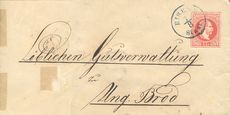 Löblichen Gutsverwaltung
zu
Ung Brod